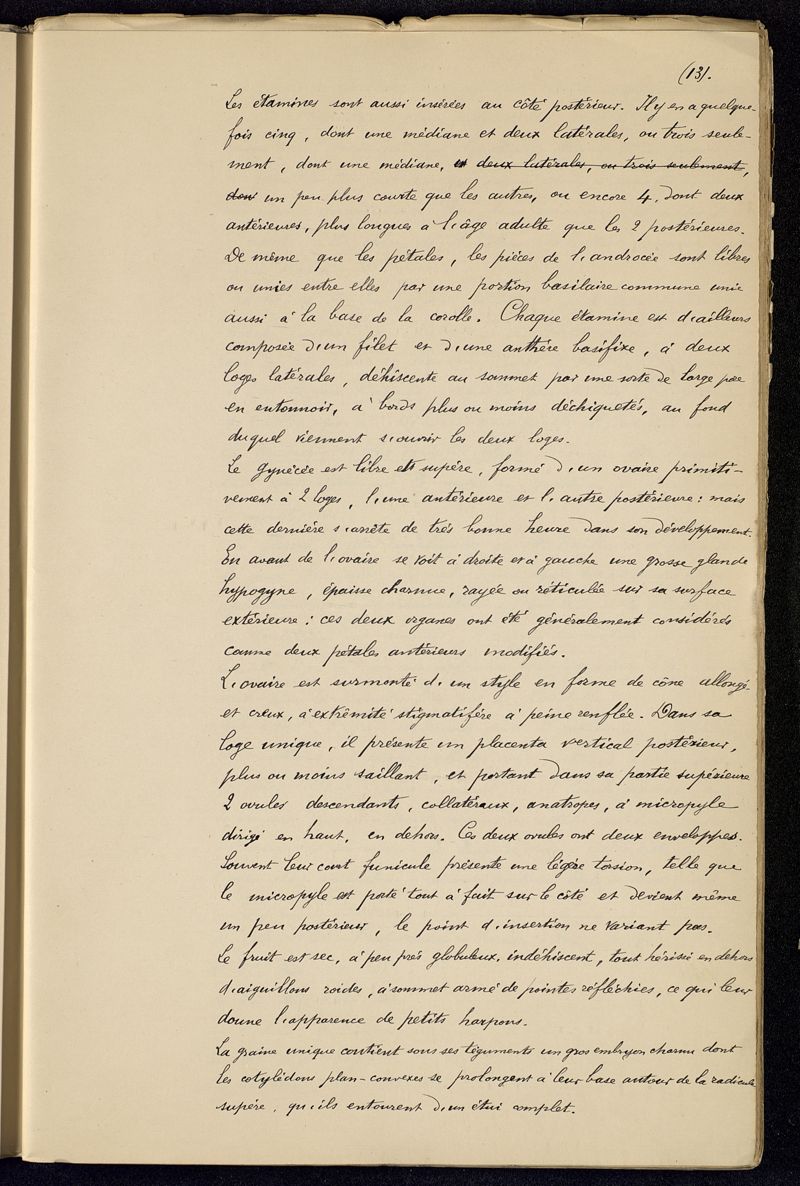 (13).
Les étamines sont aussi insérées au côté postérieur. Il y en a quelque-
fois cinq, dont une médiane et deux latérales, ou trois seule-
ment, dont une médiane, et deux latérales, ou trois seulement,
dont un peu plus courte que les autres, ou encore 4, dont deux
antérieures, plus longues à l'âge adulte que les 2 postérieures.
De même que les pétales, les pièces de l'androcée sont libres
ou unies entre elles par une portion basilaire commune unie
aussi à la base de la corolle. Chaque étamine est d'ailleurs
composée d'un filet et d'une anthère basifixe, à deux
loges latérales, déhiscente au sommet par une sorte de large pore
en entonnoir, à bords plus ou moins déchiquetés, au fond
duquel viennent s'ouvrir les deux loges.
Le gynécée est libre et supère, formé d'un ovaire primiti-
vement à 2 loges, l'une antérieure et l'autre postérieure: mais
cette dernière s'arrête de très bonne heure dans son développement.
En avant de l'ovaire se voit à droite et à gauche une grosse glande
hypogyne, épaisse charnue, rayée ou réticulée sur sa surface
extérieure: ces deux organes ont été généralement considérés
comme deux pétales antérieurs modifiés.
L'ovaire est surmonté d'un style en forme de cône allongé
et creux, à extrêmité stigmatifère à peine renflée. Dans sa
loge unique, il présente un placenta vertical postérieur,
plus ou moins saillant, et portant dans sa partie supérieure
2 ovules descendants, collatéraux, anatropes, à micropyle
dirigé en haut, en dehors. Ces deux ovules ont deux enveloppes.
Souvent leur court funicule présente une légère torsion, telle que
le micropyle est porté tout à fait sur le côté et devient même
un peu postérieur, le point d'insertion ne variant pas.
Le fruit est sec, à peu près globuleux, indéhiscent, tout hérissé en dehors
d'aiguillons roides, à sommet armé de pointes réfléchies, ce qui leur
donne l'apparence de petits harpons.
La graine unique contient sous ses téguments un gros embryon charnu dont
les cotylédons plan-convexes se prolongent à leur base autour de la radicule
supère, qu'ils entourent d'un étui complet.